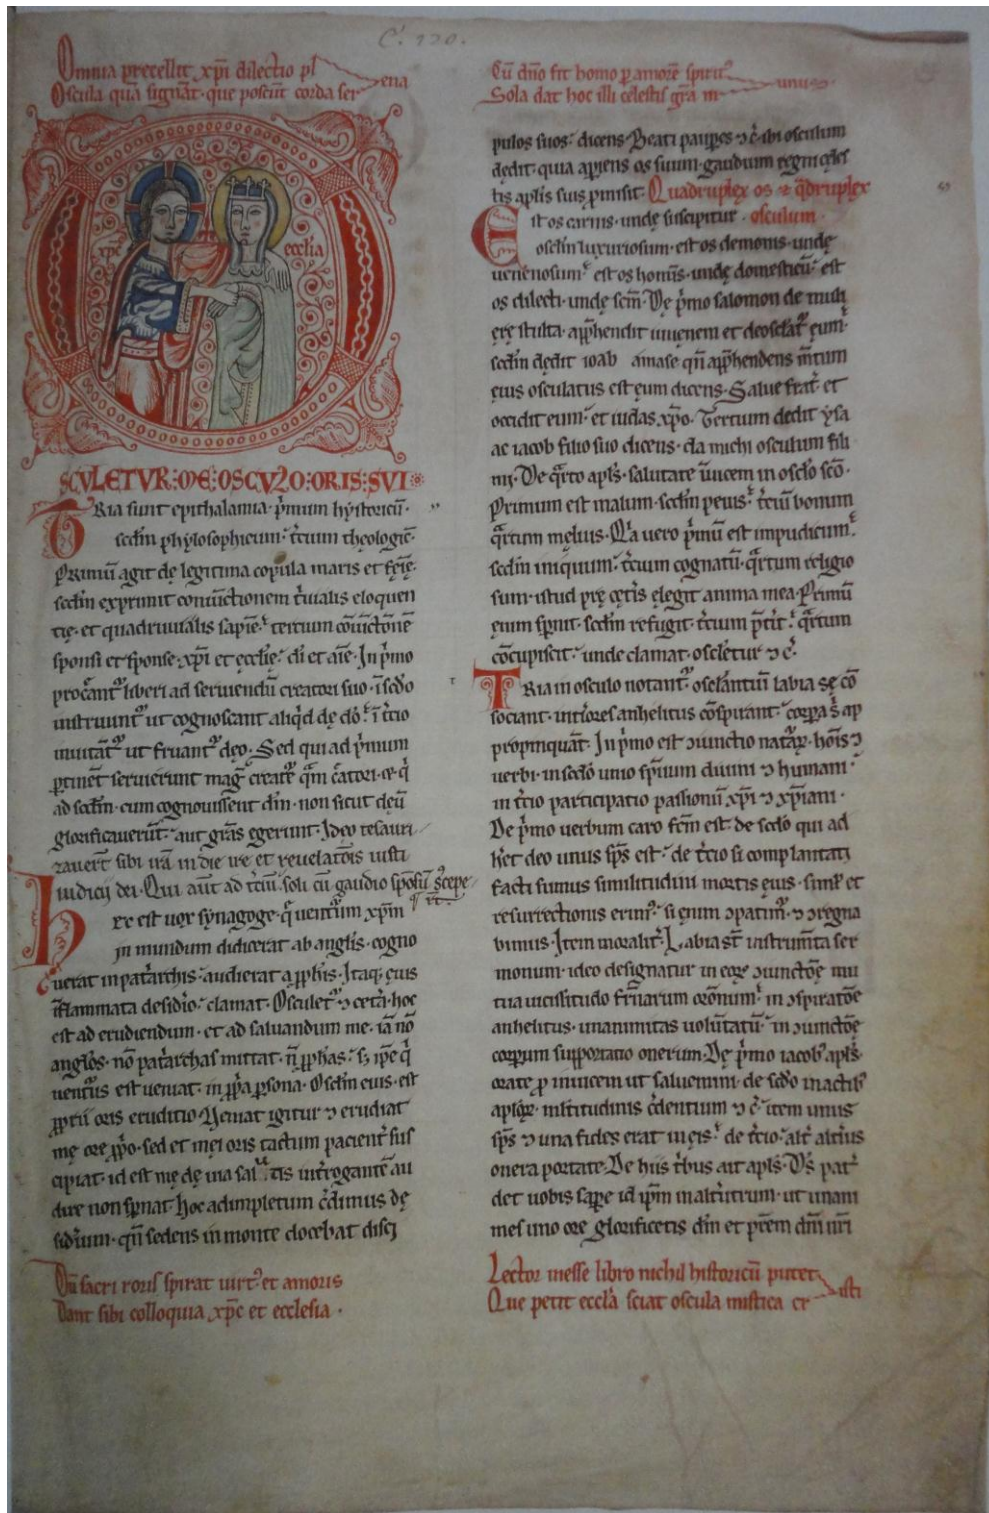 C. 120.
Omnia precellit xpi dilectio pl
ena
Oscula qua signat· que poscunt corda ser
xpc
ecclia
SCVLETVR:ME:OSCVLO:ORIS:SVI
TRia sunt epithalamia· p̾mum hystoricū·
scd̄m phylosophicum· t̾cium theologic̄·
Primū agit de legitima copula maris et fēīe·
scd̄m exprimit coniūctionem t̾uialis eloquen
tie· et quadruuialis sapīe· tertium cōiūctōnē
sponsi et sponse· xp̄i et ecclīe· di et aīe· In p̾mo
procānt̾ liberi ad seruiendū creatori suo· ī scdo
instruunt̾ ut cognoscant aliqd de dō· ī t̾cio
inuitāt̾ ut fruant̾ deo· Sed qui ad p̾mum
ptinēt seruierunt mag̾ creat̾e q̄m c̾atori·
ad scd̄m· cum cognouissent dm̄· non sicut deū
glorificauerūt· aut gras egerunt· Ideo tesauri
zauert̄ sibi irā in die ire et reuelatōis iusti
iudicij dei· Qui aūt ad t̾ciū· soli cū gaudio sposū scepe
rt
hec est uox synagoge· q̄ uenturum xpm̄
in mundum didicerat ab anglis· cogno
uerat in pat̾archis· audierat a pphis· Itaq; eius
īflammata desid̾io· clamat· Osculet̾ ⁊ cet̾a· hoc
est ad erudiendum· et ad saluandum me· iā nō
anglos· nō pat̾archas mittat· n̄ pphas· s; ipe q̄
uentur̾ est ueniat· in ppa psona· Osclm eius· est
ppriū oris eruditio· Veniat igitur ⁊ erudiat
me ore ppo· sed et mei oris tactum pacient̾ sus
cipiat· id est me de uia salutis int̾rogantē au
dire non spnat· hoc adimpletum c̾dimus de
sid̾ium· qn̄ sedens in monte docebat disci
Dū sacri roris spirat uirt̾ et amoris
Dant sibi colloquia xpc et ecclesia·
Cū dn̄o fit homo p amorē spirit̾
unus·
Sola dat hoc illi celestis gr̄a m
pulos suos· dicens· Beati paupes ⁊ c̄· ibi osculum
dedit· quia apiens os suum· gaudium regni celes
tis aplis suis pmisit· Quadruplex os ⁊ qdruplex
Est os carnis· unde suscipitur· osculum·
osclm luxuriosum· est os demonis· unde
uenenosum· est os hominis· unde domesticū· est
os dilecti· unde scm̄· De p̾mo salomon de muli
ere stulta· appħendit iuuenem et deosclat̾ eum·
scd̄m dedit ioab amase qn̄ appħendens m̄tum
eius osculatus est eum dicens· Salue frat̾· et
occidit eum· et iudas xpo· Tertium dedit ysa
ac iacob filio suo dicens· da michi osculum fili
mi· De q̾rto apls· salutate īuicem in osclo scō·
Primum est malum· scd̄m peius· t̾ciū bonum
q̾rtum melius· Q̾a uero p̾mū est impudicum·
scd̄m iniquum· t̾cium cognatū· q̾rtum religio
sum· istud pre cet̾is elegit anima mea· Primū
enim spnit· scd̄m refugit· t̾cium pt̾it· q̾rtum
cōcupiscit· unde clamat· oscletur ⁊ c̄·
TRia in osculo notant̾· osclantiū labia se cō
sociant· int̾iores anhelitus cōspirant· corpa s̾ ap
propinquāt· In p̾mo est ↄiunctio natarꝝ· hoīs ⁊
uerbi· in scdo unio sp̄uum diuini ⁊ humani·
in t̾cio participatio passionū xpi ⁊ xpiani·
De p̾mo uerbum caro fcm̄ est· de scdo qui ad
heret deo unus sps est· de t̾cio si complantati
facti sumus similitudini mortis eius· siml̄ et
resurrectionis erim̾· si enim ↄpatim̾· ⁊ ↄregna
bimus· Item moralit̾· Labia st̄ instrumta ser
monum· ideo designatur in eorꝝ ↄiunctōe mu
tua uicissitudo frnarum orōnum· in ↄspiratōe
anhelitus· unanimitas uoluntatū· in ↄiunctōe
corporum supportatio onerum· De p̾mo iacob̾ apls·
orate p inuicem ut saluemini· de scdo in actib̾
aplorꝝ· multitudinis c̾dentium ⁊ c̄· item unus
sps ⁊ una fides erat in eis· de t̾cio· alt̾ alt̾ius
onera portate· De hiis t̾bus ait apls· D̄s pat̾
det uobis sapere id ipm̄ in alt̾utrum· ut unani
mes uno ore glorificetis dm̄ et prem̄ dnī nrī
Lector inesse libro nichil historicū putet
isti
Que petit eccla sciat oscula mistica cr